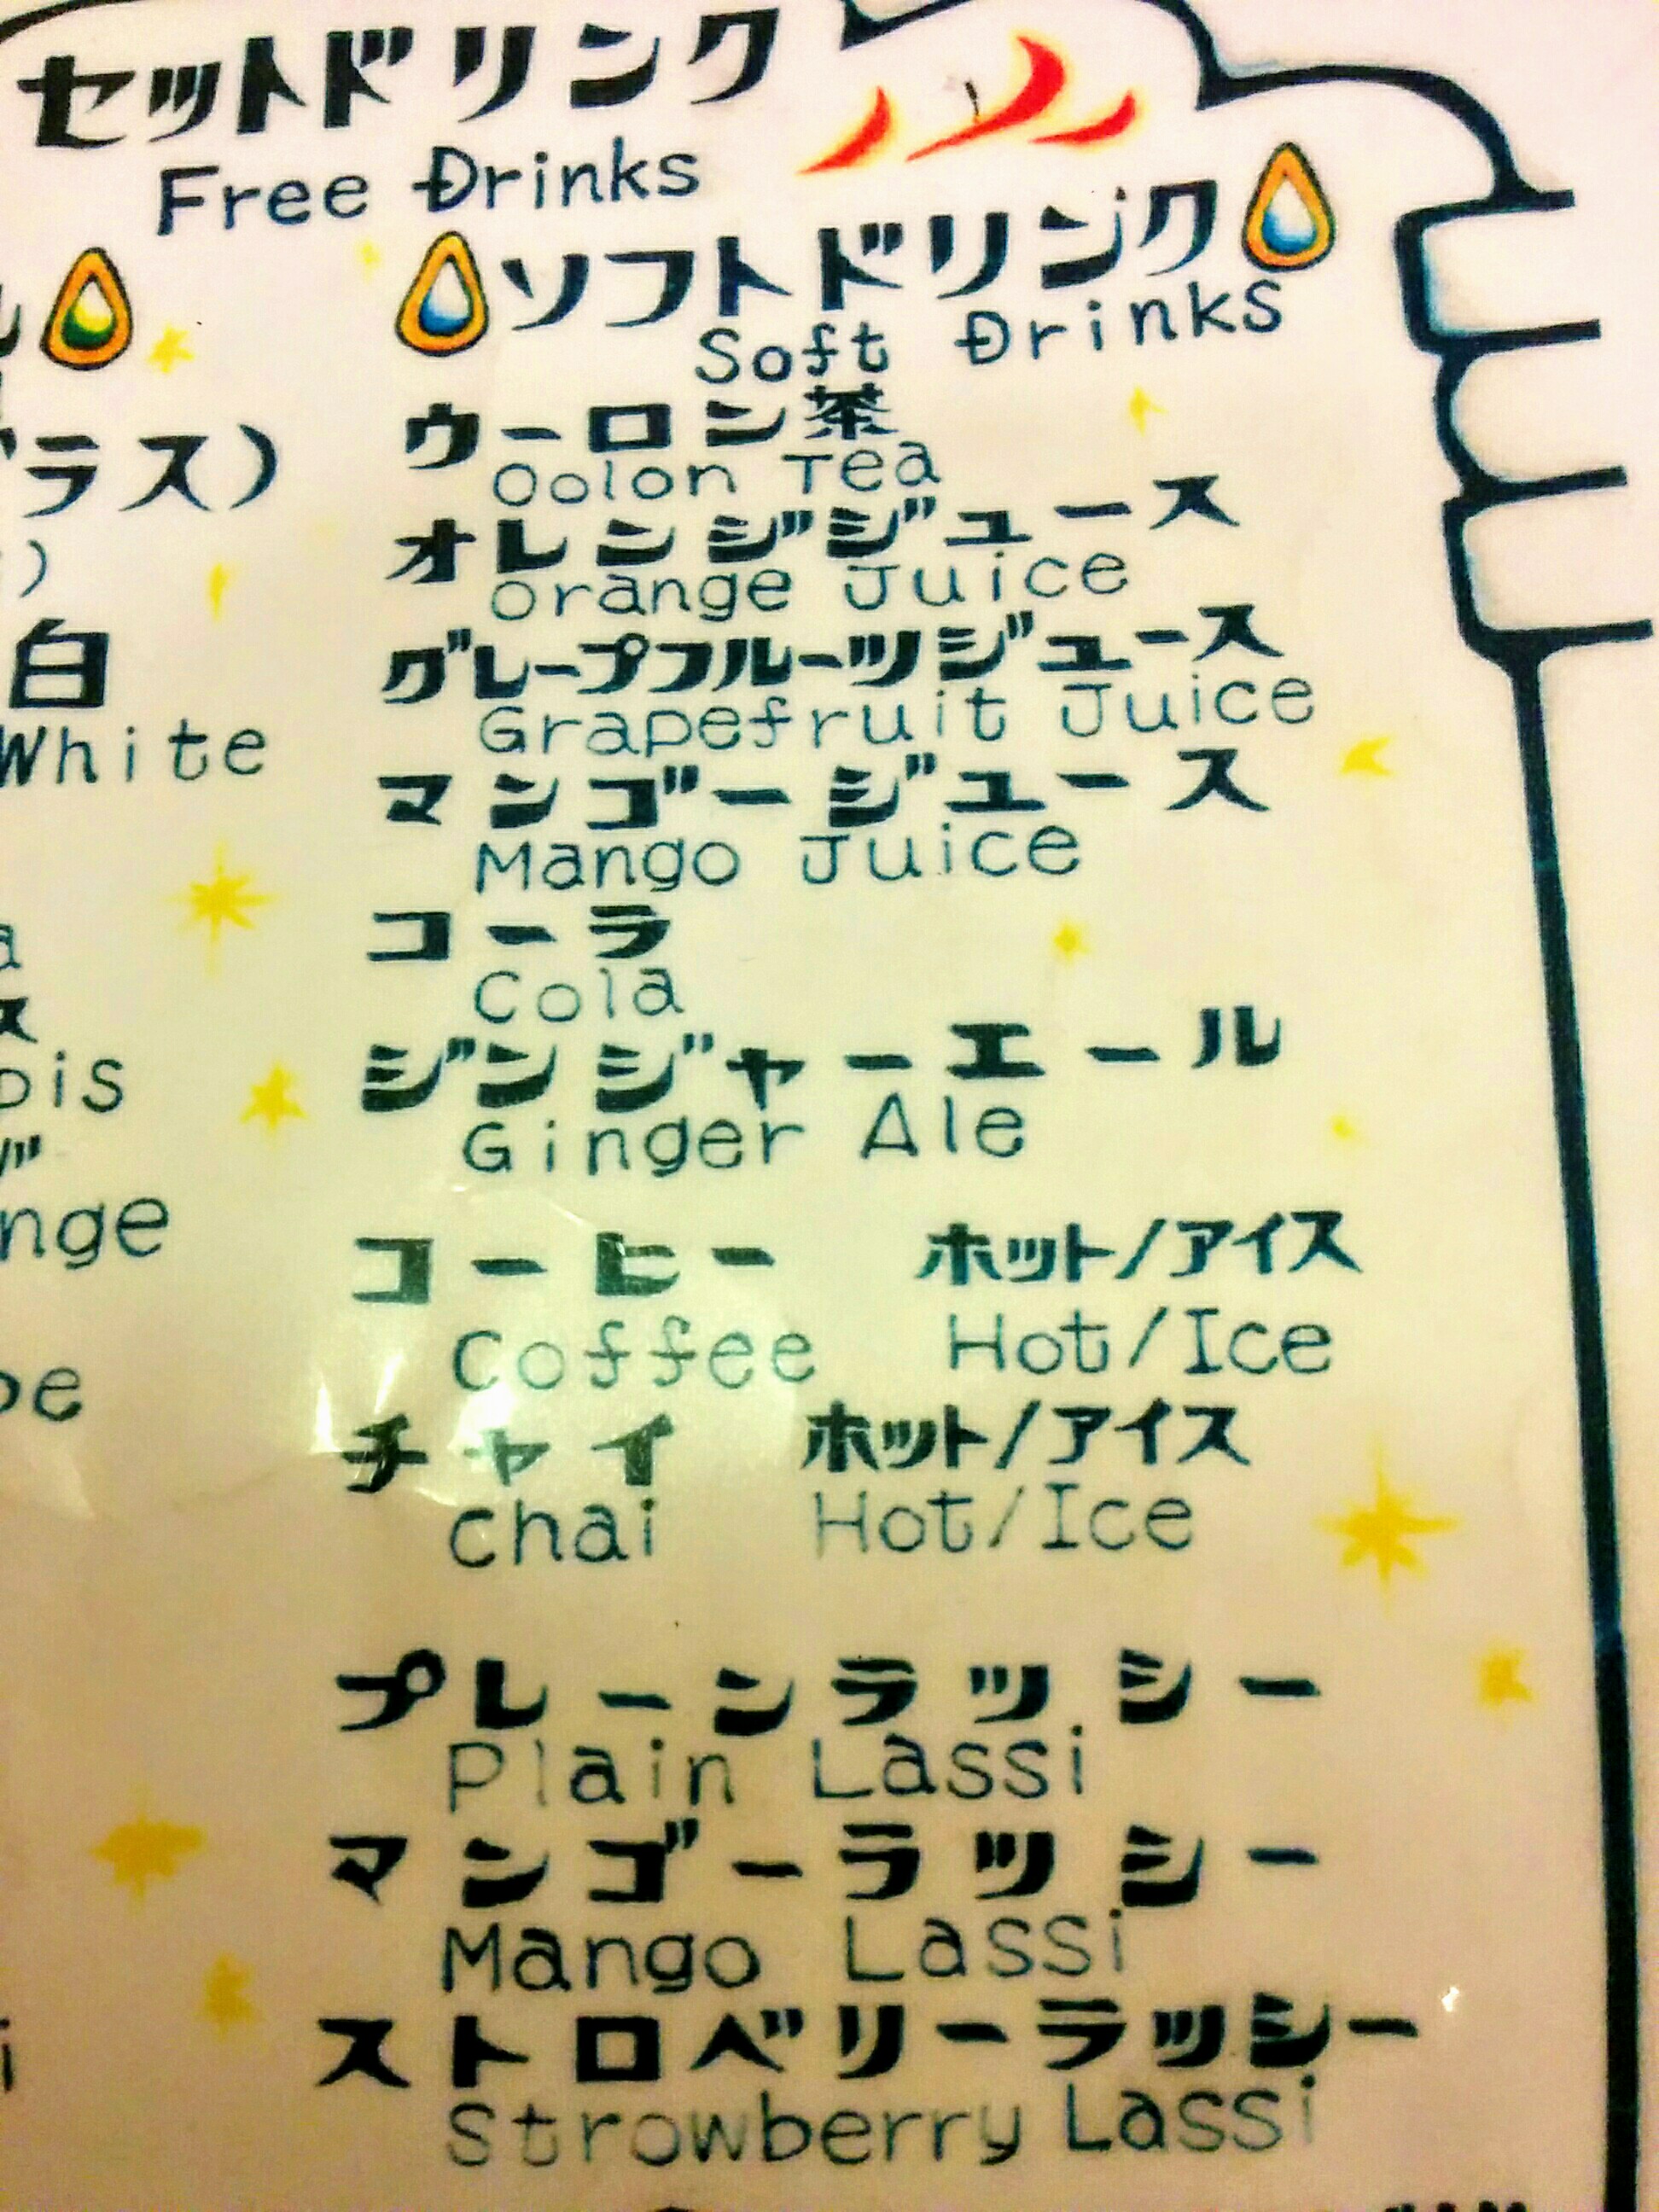 セットドリンク
Free Drinks
ソフトドリンク
Soft Drinks
ウーロン茶
Oolon Tea
オレンジジュース
Orange Juice
グレープフルーツジュース
Grapefruit Juice
マンゴージュース
Mango Juice
コーラ
Cola
ジンジャーエール
Ginger Ale
コーヒー ホット/アイス
Coffee Hot/Ice
チャイ ホット/アイス
chai Hot/Ice
プレーンラッシー
Plain Lassi
マンゴーラッシー
Mango Lassi
ストロベリーラッシー
Strowberry Lassi
ラス)
)
白
White